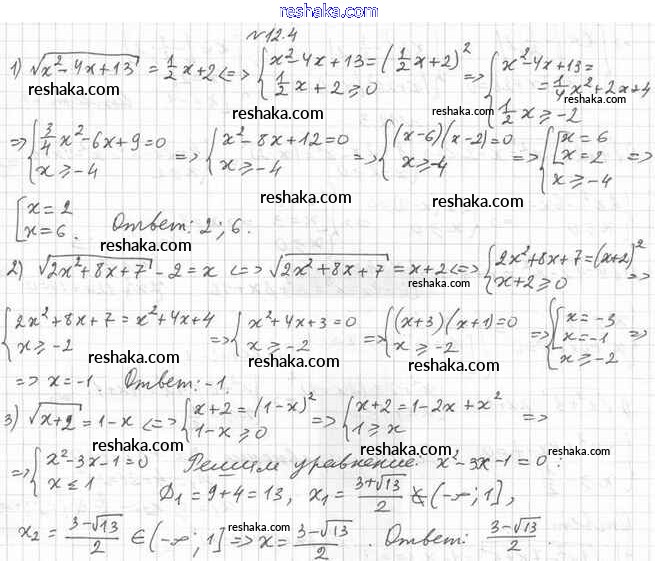 reshaka.com
№12.4
1) √(x²-4x+13) = ½x+2 <=> { x²-4x+13=(½x+2)² ; ½x+2≥0 => { x²-4x+13= =¼x²+2x+4 ; ½x≥-2
reshaka.com reshaka.com reshaka.com
=> { ¾x²-6x+9=0 ; x≥-4 => { x²-8x+12=0 ; x≥-4 => { (x-6)(x-2)=0 ; x≥-4 => { [ x=6 ; x=2 ; x≥-4 =>
reshaka.com reshaka.com
[ x=2 ; x=6. Ответ: 2; 6.
reshaka.com
2) √(2x²+8x+7) -2=x <=> √(2x²+8x+7) = x+2 <=> { 2x²+8x+7=(x+2)² ; x+2≥0 =>
reshaka.com
{ 2x²+8x+7=x²+4x+4 ; x≥-2 => { x²+4x+3=0 ; x≥-2 => { (x+3)(x+1)=0 ; x≥-2 => { [ x=-3 ; x=-1 ; x≥-2 =>
reshaka.com reshaka.com
=> x=-1. Ответ: -1.
reshaka.com
3) √(x+2) = 1-x <=> { x+2=(1-x)² ; 1-x≥0 => { x+2=1-2x+x² ; 1≥x =>
reshaka.com reshaka.com
=> { x²-3x-1=0 ; x≤1 Решим уравнение: x²-3x-1=0:
reshaka.com
D₁=9+4=13, x₁=(3+√13)/2 ∉ (-∞; 1],
x₂=(3-√13)/2 ∈ (-∞; 1] => x=(3-√13)/2. Ответ: (3-√13)/2.
reshaka.com reshaka.com